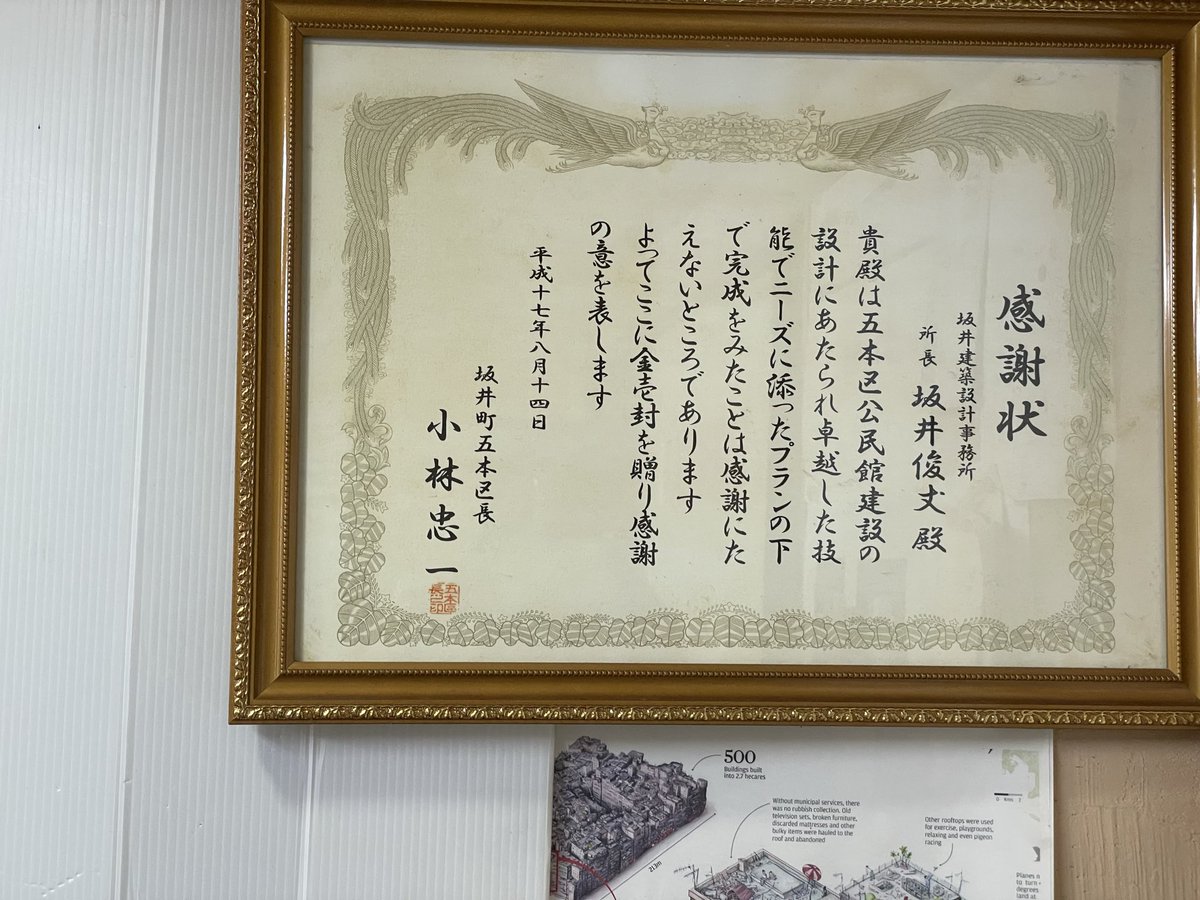 感謝状
坂井建築設計事務所
所長 坂井俊丈殿
貴殿は五本区公民館建設の
設計にあたられ卓越した技
能でニーズに添ったプランの下
で完成をみたことは感謝にた
えないところであります
よってここに金壱封を贈り感謝
の意を表します
平成十七年八月十四日
坂井町五本区長
小林忠一
五本区
長之印
500
Buildings built
into 2.7 hecares
Without municipal services, there
was no rubbish collection. Old
television sets, broken furniture,
discarded mattresses and other
bulky items were hauled to the
roof and abandoned
213m
Other rooftops were used
for exercise, playgrounds,
relaxing and even pigeon
racing
0 Kms 2
Planes
to turn
degrees
land at